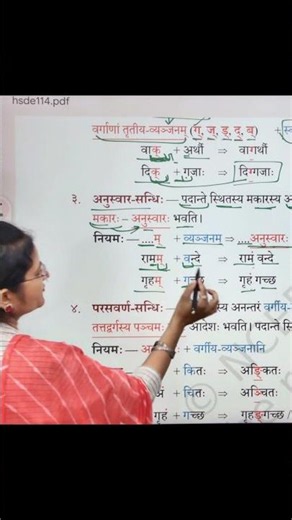 hsde114.pdf
वर्गाणां तृतीय-व्यञ्जनम् (ग्, ज्, ड्, द्, ब्) +
वाक् + अर्थौ ⇒ वागर्थौ
दिक् + गजाः ⇒ दिग्गजाः
३. अनुस्वार-सन्धिः — पदान्ते स्थितस्य मकारस्य
मकारः – अनुस्वारः भवति।
नियमः — ....म् + व्यञ्जनम् ⇒ ....अनुस्वारः
रामम् + वन्दे ⇒ रामं वन्दे
गृहम् + ⇒ गृहं गच्छ
४. परसवर्ण-सन्धिः — स्य अनन्तरं वर्गीय-
तत्तद्वर्गस्य पञ्चमः आदेशः भवति। पदान्ते
नियमः — + वर्गीय-व्यञ्जनानि
+ कितः ⇒ अङ्कितः
+ चितः ⇒ अञ्चितः
गृहं + गच्छ ⇒ गृहङ्गच्छ